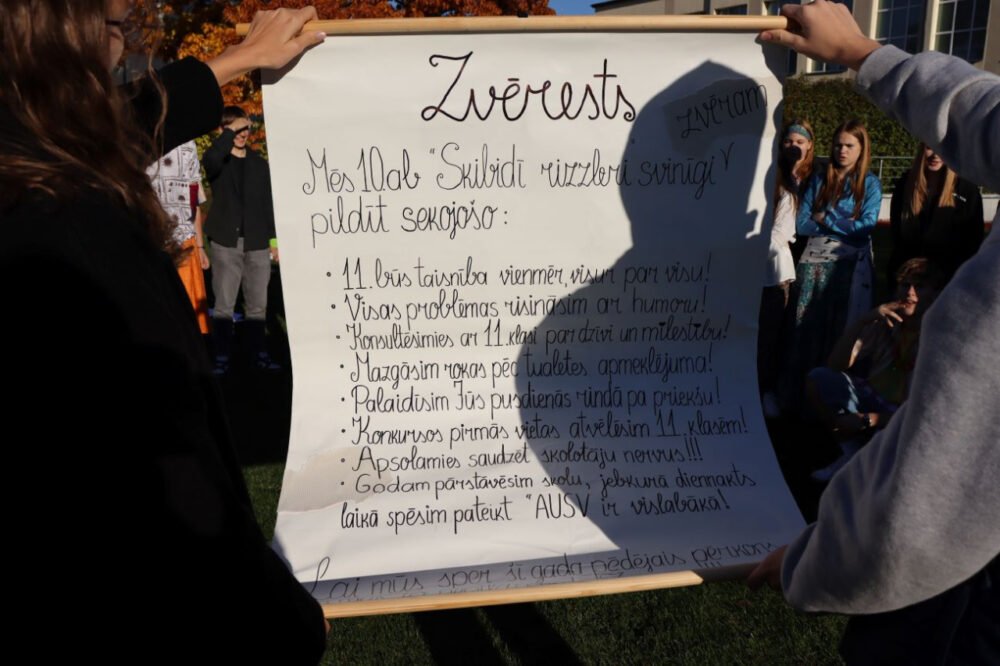 Zvērests
Mēs 10.ab "Skibidī rizzleri" svinīgi zvēram
pildīt sekojošo:
• 11. būs taisnība vienmēr, visur par visu!
• Visas problēmas risināsim ar humoru!
• Konsultēsimies ar 11. klasi par dzīvi un mīlestību!
• Mazgāsim rokas pēc tualetes apmeklējuma!
• Palaidīsim Jūs pusdienās rindā pa priekšu!
• Konkursos pirmās vietas atvēlēsim 11. klasēm!
• Apsolamies saudzēt skolotāju nervus!!!
• Godam pārstāvēsim skolu, jebkurā diennakts
laikā spēsim pateikt "AUSV ir vislabākā!
Lai mūs sper šī gada pēdējais pērkons